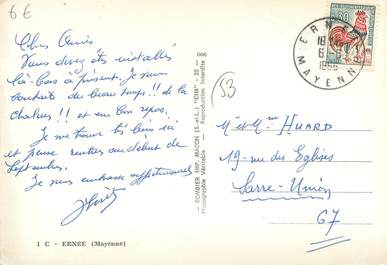 6€
Chers Amis
Vous devez être installés
là-bas à présent. Je vous
souhaite du beau temps!! de la
chaleur!! et un bon repos.
Je me trouve très bien ici
et pense rentrer au début de
Septembre.
Je vous embrasse affectueusement
1 C - ERNÉE (Mayenne)
COMBIER IMP. MACON (S.-et-L.) "CIM" - 25 - DOC
Photographie Véritable - Reproduction Interdite
ERNÉE
MAYENNE
53
M et Mme HUARD
19 rue des Eglises
Sarre-Union
67